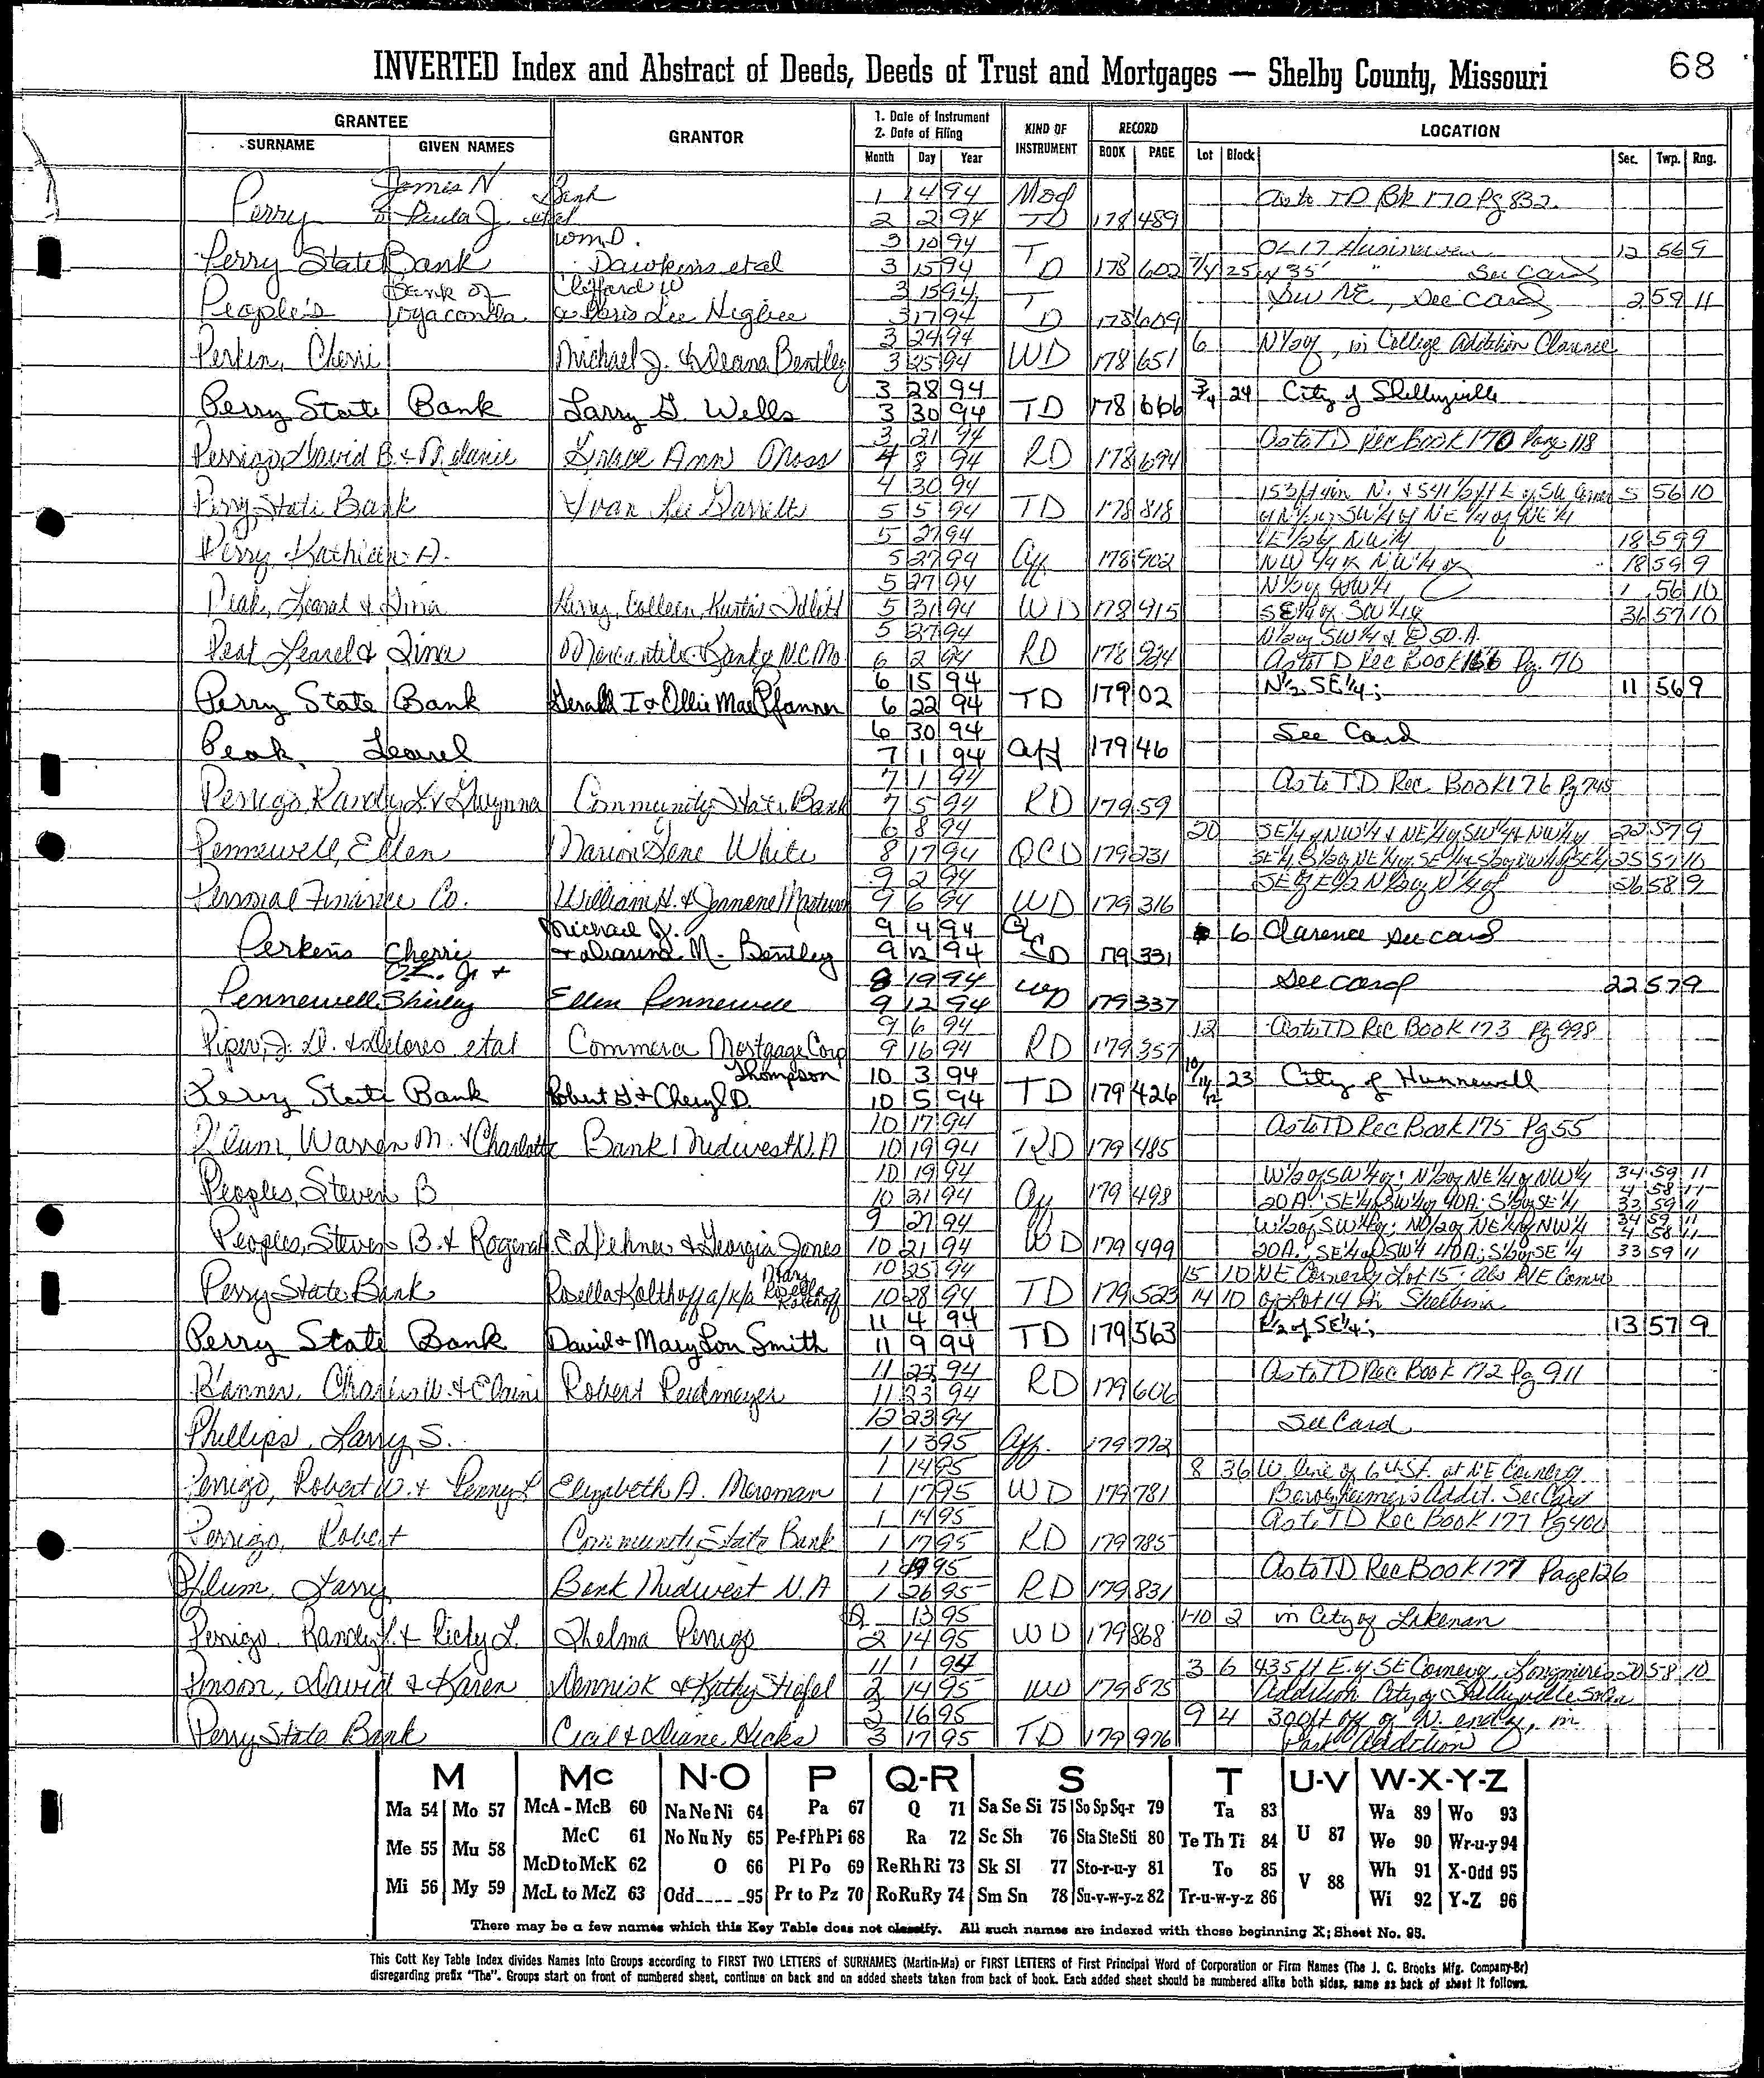 INVERTED Index and Abstract of Deeds, Deeds of Trust and Mortgages — Shelby County, Missouri
68
GRANTEE GRANTOR 1. Date of Instrument 2. Date of Filing KIND OF INSTRUMENT RECORD LOCATION
SURNAME GIVEN NAMES Month Day Year BOOK PAGE Lot Block Sec. Twp. Rng.
James N. Bank 1 14 94 Mod As to TD Bk 170 Pg 832
Perry & Paula J. etal 2 2 94 TD 178 489
Wm D. 3 10 94 T OL 17 12 56 9
Perry State Bank Dawkins etal 3 15 94 D 178 602 3/4 25 35' " See Card
Bank of Clifford W 3 15 94 T SW NE, See Card 2 59 11
People's Wyaconda & Doris Lee 3 17 94 D 178 609
3 24 94 6 N 1/2 of, in College Addition Clarence
Perkin, Cherri Michael J. & Deana Bentley 3 25 94 WD 178 651
3 28 94 3/4 24 City of Shelbyville
Perry State Bank Larry G. Wells 3 30 94 TD 178 666
3 21 94 As to TD Rec Book 170 Page 118
Perrigo, David B. & Melanie Grace Ann Moss 4 8 94 RD 178 694
4 30 94 153 ft 4 in N. & 541 1/2 ft E of SW Corner 5 56 10
Perry State Bank Yvan Lee Garrett 5 5 94 TD 178 818 of N 1/2 of SW 1/4 of NE 1/4 of NE 1/4
5 27 94 E 1/2 of NW 1/4 18 59 9
Perry, Kathleen A. 5 27 94 Aff 178 902 NW 1/4 NW 1/4 of 18 59 9
5 27 94 N 1/2 of SW 1/4 1 56 10
Peak, Learel & Tina Larry, Colleen, Kurtis 5 31 94 WD 178 915 SE 1/4 of SW 1/4 36 57 10
5 27 94 N 1/2 of SW 1/4 & E 50.A.
Peak Learel & Tina Mercantile Bank of N.C. Mo. 6 2 94 RD 178 924 As to TD Rec Book 166 Pg. 76
6 15 94 N 1/2 SE 1/4; 11 56 9
Perry State Bank Gerald I & Ollie Mae Pfanner 6 22 94 TD 179 02
6 30 94 See Card
Peak, Learel 7 1 94 Aff 179 46
7 1 94 As to TD Rec. Book 176 Pg 745
Perrigo, Randy L & Gwynna Community State Bank 7 5 94 RD 179 59
6 8 94 20 SE 1/4 of NW 1/4 & NE 1/4 of SW 1/4 & NW 1/4 of 22 57 9
Pennewell, Ellen Marion Gene White 8 17 94 QCD 179 231 SE 1/4, S 1/2 of NE 1/4 of SE 1/4 & S 1/2 of NW 1/4 of SE 1/4 25 57 10
9 2 94 26 58 9
Personal Finance Co. William H. & Jannene 9 6 94 WD 179 316
Michael J. 9 4 94 6 Clarence See card
Perkins Cherri & Deanna M. Bentley 9 12 94 179 331
O.L. Jr. & 8 19 94 See card 22 57 9
Pennewell Shirley Ellen Pennewell 9 12 94 WD 179 337
9 6 94 12 As to TD Rec Book 173 Pg 998
Piper, J. D. & Delores etal Commerce Mortgage Corp 9 16 94 RD 179 357
Thompson 10 3 94 10/11/12 23 City of Hunnewell
Perry State Bank Robert G. & Cheryl D. 10 5 94 TD 179 426
10 17 94 As to TD Rec Book 175 Pg 55
Pflum, Warren M. & Charlotte Bank Midwest N.A 10 19 94 RD 179 485
10 19 94 W 1/2 of SW 1/4 of; N 1/2 of NE 1/4 of NW 1/4 34 59 11
Peoples, Steven B 10 21 94 Aff 179 498 20 A. SE 1/4 of SW 1/4 of 40A. S 1/2 of SE 1/4 4 58 11 33 59 11
9 27 94 W 1/2 of SW 1/4 of; N 1/2 of NE 1/4 of NW 1/4 34 59 11
Peoples, Steven B. & Rogena Ed & Georgia Jones 10 21 94 WD 179 499 20A., SE 1/4 of SW 1/4 40A; S 1/2 of SE 1/4 4 58 11 33 59 11
10 25 94 15 10 NE Corner of Lot 15; also NE Corner
Perry State Bank Rosella Kolthoff a/k/a Mary Rosella Kolthoff 10 28 94 TD 179 523 14 10 of Lot 14 in Shelbina
11 4 94 E 1/2 of SE 1/4; 13 57 9
Perry State Bank David & Mary Lou Smith 11 9 94 TD 179 563
11 23 94 As to TD Rec Book 172 Pg 911
Pfanner, Charles W. & Elaine Robert Reidmeyer 11 23 94 RD 179 606
12 23 94 See Card
Phillips, Larry S. 1 13 95 Aff. 179 772
1 14 95 8 36 W. line of 6th St. at NE Corner of
Perrigo, Robert W. & Penny L Elizabeth A. Meroman 1 17 95 WD 179 781 Addit. See Card
1 14 95 As to TD Rec Book 177 Pg 400
Perrigo, Robert Community State Bank 1 17 95 RD 179 785
1 19 95 As to TD Rec Book 177 Page 126
Pflum, Larry Bank Midwest N.A 1 26 95 RD 179 831
2 13 95 1-10 2 in City of Lakenan
Perrigo, Randy L. & Ricky L. Thelma Perrigo 2 14 95 WD 179 868
11 1 94 3 6 435 ft E. of SE Corner of, Longmires 20 58 10
Pinson, David & Karen Dennis K & Kathy Stiefel 2 14 95 WD 179 875 Addition City of Shelbyville
3 16 95 9 4 300 ft off of N. end of, in
Perry State Bank Cecil & Diane Hicks 3 17 95 TD 179 976 Park Addition
M Mc N-O P Q-R S T U-V W-X-Y-Z
Ma 54 Mo 57 McA - McB 60 Na Ne Ni 64 Pa 67 Q 71 Sa Se Si 75 So Sp Sq-r 79 Ta 83 U 87 Wa 89 Wo 93
Me 55 Mu 58 McC 61 No Nu Ny 65 Pe-f Ph Pi 68 Ra 72 Sc Sh 76 Sta Ste Sti 80 Te Th Ti 84 We 90 Wr-u-y 94
McD to McK 62 O 66 Pl Po 69 Re Rh Ri 73 Sk Sl 77 Sto-r-u-y 81 To 85 V 88 Wh 91 X-Odd 95
Mi 56 My 59 McL to McZ 63 Odd -95 Pr to Pz 70 Ro Ru Ry 74 Sm Sn 78 Su-v-w-y-z 82 Tr-u-w-y-z 86 Wi 92 Y-Z 96
There may be a few names which this Key Table does not classify. All such names are indexed with those beginning X; Sheet No. 95.
This Cott Key Table Index divides Names Into Groups according to FIRST TWO LETTERS of SURNAMES (Martin-Ma) or FIRST LETTERS of First Principal Word of Corporation or Firm Names (The J. C. Brooks Mfg. Company-Br)
disregarding prefix "The". Groups start on front of numbered sheet, continue on back and on added sheets taken from back of book. Each added sheet should be numbered alike both sides, same as back of sheet it follows.